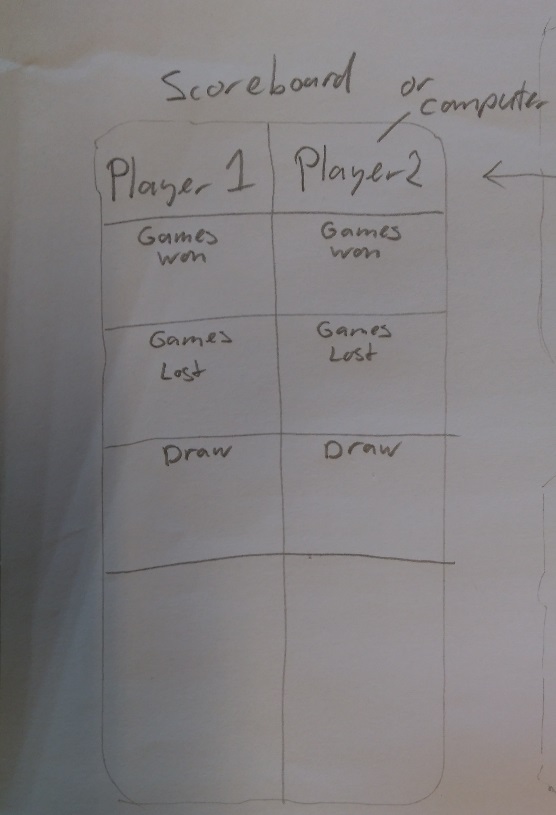 Scoreboard
or
computer
Player 1
Player 2
Games
won
Games
won
Games
Lost
Games
Lost
Draw
Draw